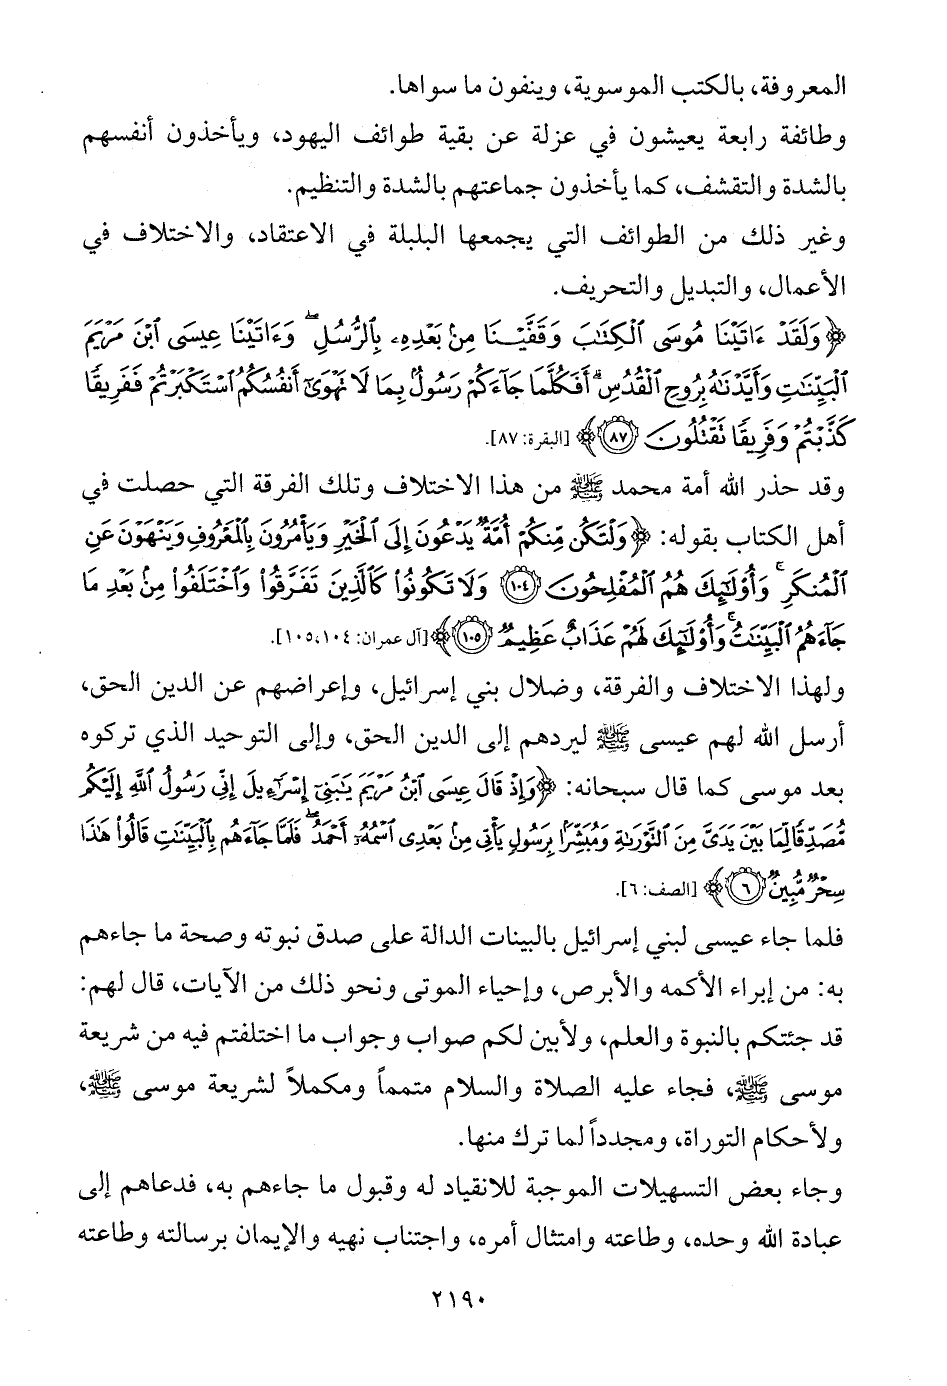 المعروفة، بالكتب الموسوية، وينفون ما سواها.
وطائفة رابعة يعيشون في عزلة عن بقية طوائف اليهود، ويأخذون أنفسهم
بالشدة والتقشف، كما يأخذون جماعتهم بالشدة والتنظيم.
وغير ذلك من الطوائف التي يجمعها البلبلة في الاعتقاد، والاختلاف في
الأعمال، والتبديل والتحريف.
﴿وَلَقَدْ ءَاتَيْنَا مُوسَى ٱلْكِتَٰبَ وَقَفَّيْنَا مِنۢ بَعْدِهِۦ بِٱلرُّسُلِ ۖ وَءَاتَيْنَا عِيسَى ٱبْنَ مَرْيَمَ
ٱلْبَيِّنَٰتِ وَأَيَّدْنَٰهُ بِرُوحِ ٱلْقُدُسِ ۗ أَفَكُلَّمَا جَآءَكُمْ رَسُولٌۢ بِمَا لَا تَهْوَىٰٓ أَنفُسُكُمُ ٱسْتَكْبَرْتُمْ فَفَرِيقًا
كَذَّبْتُمْ وَفَرِيقًا تَقْتُلُونَ ٨٧﴾ [البقرة: ٨٧].
وقد حذر الله أمة محمد ﷺ من هذا الاختلاف وتلك الفرقة التي حصلت في
أهل الكتاب بقوله: ﴿وَلْتَكُن مِّنكُمْ أُمَّةٌ يَدْعُونَ إِلَى ٱلْخَيْرِ وَيَأْمُرُونَ بِٱلْمَعْرُوفِ وَيَنْهَوْنَ عَنِ
ٱلْمُنكَرِ ۚ وَأُو۟لَٰٓئِكَ هُمُ ٱلْمُفْلِحُونَ ١٠٤ وَلَا تَكُونُوا۟ كَٱلَّذِينَ تَفَرَّقُوا۟ وَٱخْتَلَفُوا۟ مِنۢ بَعْدِ مَا
جَآءَهُمُ ٱلْبَيِّنَٰتُ ۚ وَأُو۟لَٰٓئِكَ لَهُمْ عَذَابٌ عَظِيمٌ ١٠٥﴾ [آل عمران: ١٠٤، ١٠٥].
ولهذا الاختلاف والفرقة، وضلال بني إسرائيل، وإعراضهم عن الدين الحق،
أرسل الله لهم عيسى ﷺ ليردهم إلى الدين الحق، وإلى التوحيد الذي تركوه
بعد موسى كما قال سبحانه: ﴿وَإِذْ قَالَ عِيسَى ٱبْنُ مَرْيَمَ يَٰبَنِىٓ إِسْرَٰٓءِيلَ إِنِّى رَسُولُ ٱللَّهِ إِلَيْكُم
مُّصَدِّقًا لِّمَا بَيْنَ يَدَىَّ مِنَ ٱلتَّوْرَىٰةِ وَمُبَشِّرًۢا بِرَسُولٍ يَأْتِى مِنۢ بَعْدِى ٱسْمُهُۥٓ أَحْمَدُ ۖ فَلَمَّا جَآءَهُم بِٱلْبَيِّنَٰتِ قَالُوا۟ هَٰذَا
سِحْرٌ مُّبِينٌ ٦﴾ [الصف: ٦].
فلما جاء عيسى لبني إسرائيل بالبينات الدالة على صدق نبوته وصحة ما جاءهم
به: من إبراء الأكمه والأبرص، وإحياء الموتى ونحو ذلك من الآيات، قال لهم:
قد جئتكم بالنبوة والعلم، ولأبين لكم صواب وجواب ما اختلفتم فيه من شريعة
موسى ﷺ، فجاء عليه الصلاة والسلام متمماً ومكملاً لشريعة موسى ﷺ،
ولأحكام التوراة، ومجدداً لما ترك منها.
وجاء بعض التسهيلات الموجبة للانقياد له وقبول ما جاءهم به، فدعاهم إلى
عبادة الله وحده، وطاعته وامتثال أمره، واجتناب نهيه والإيمان برسالته وطاعته
٢١٩٠